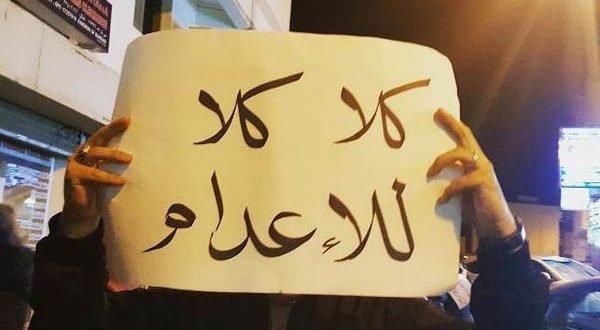 كلا كلا
للإعدام